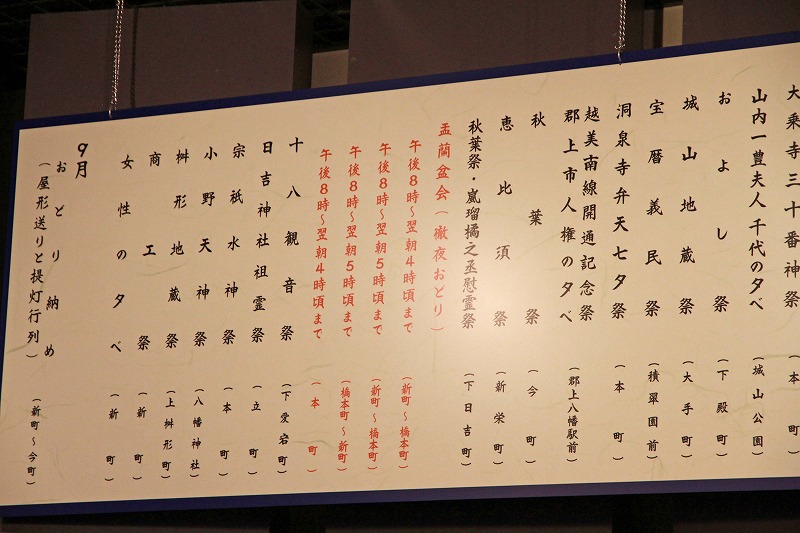 大乗寺三十番神祭（本町）
山内一豊夫人 千代の夕べ（城山公園）
およし祭（下殿町）
城山地蔵祭（大手町）
宝暦義民祭（積翠園前）
洞泉寺弁天七夕祭（本町）
越美南線開通記念祭
郡上市人権の夕べ（郡上八幡駅前）
秋葉祭（今町）
恵比須祭（新栄町）
秋葉祭・嵐瑠橘之丞慰霊祭（下日吉町）
盂蘭盆会（徹夜おどり）
午後8時〜翌朝4時頃まで（新町〜橋本町）
午後8時〜翌朝5時頃まで（新町〜橋本町）
午後8時〜翌朝5時頃まで（橋本町〜新町）
午後8時〜翌朝4時頃まで（本町）
十八観音祭（下愛宕町）
日吉神社祖霊祭（立町）
宗祇水神祭（本町）
小野天神祭（八幡神社）
桝形地蔵祭（上桝形町）
商工祭（新町）
女性の夕べ（新町）
9月
おどり納め
（屋形送りと提灯行列）（新町〜今町）